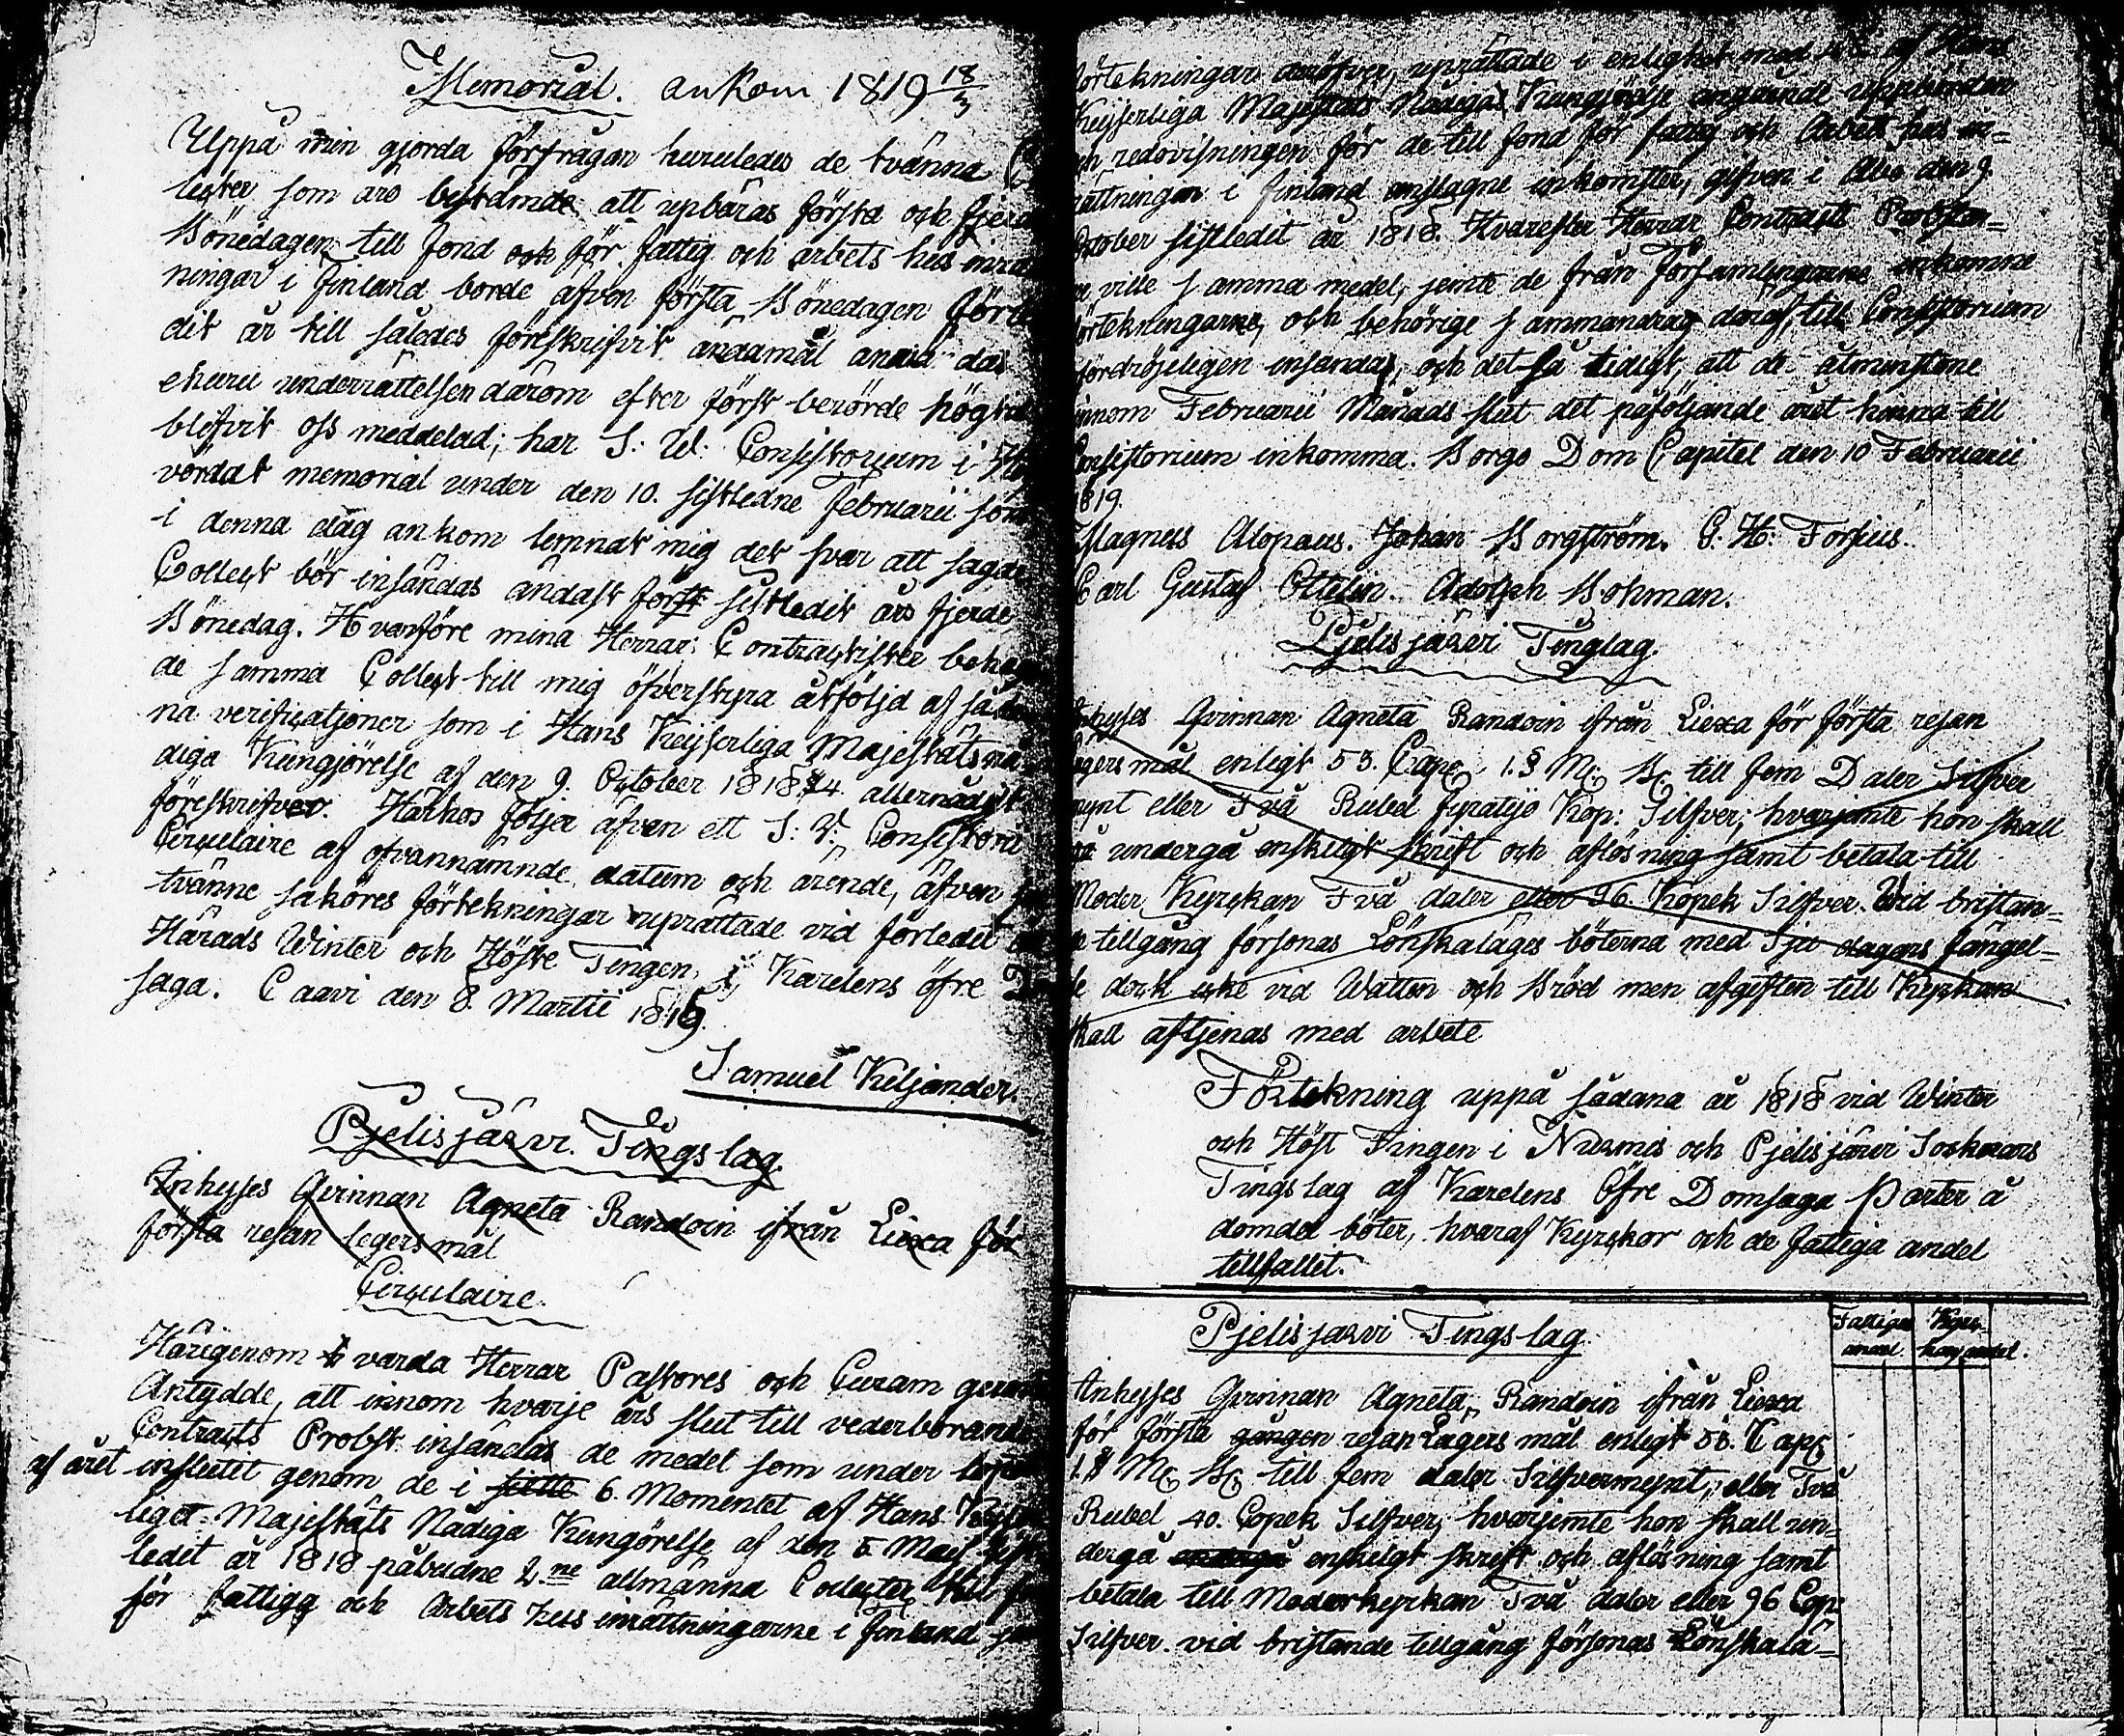 Memorial. ankom 1819 18/3
Uppå min gjorda förfrågan huruledes de tvänna
lecter som äro bestämde att upbäras första och fjerde
Bönedagen till fond och för fattig och arbets hus inrät
ningar i Finland borde äfven första Bönedagen förle
dit år till således föreskrifvit ändamål
ehuru underrättelsen därom efter först berörde högtid
blifvit oss meddelad; har S: W: Consistorium i
vördat memorial under den 10. sistledne Februarii som
i denna dag ankom lemnat mig det svar att sagde
Collect bör insändas endast för sistledit års fjerde
Bönedag. Hvarföre mina Herrar Contractister behag
de samma Collect till mig öfverstyra åtföljd af såda
na verificationer som i Hans Kejserliga Majestäts nå
diga Kungjörelse af den 9. October 1818 § 4 allernådigst
föreskrifver. Härhos följer äfven ett S: V: Consistorii
Circulaire af ofvannämnde datum och ärende, äfven
tvänne saköres förtekningar uprättade vid förledit
Härads Winter och Höste Tingen, i Karelens öfre
saga. Caavi den 8. Martii 1819.
Samuel Kiljander.
Pjelisjärvi Tingslag.
Inhyses Qvinnan Agneta Randoin ifrån Liexa för
första resan legersmål
Circulaire.
Härigenom varda Herrar Pastores och Curam ger
Antydde, att innom hvarje års slut till vederbörande
Contracts Probst insändas de medel som under
af året influtet genom de i 6. Momentet af Hans
liget Majestäts Nådiga Kungörelse af den 5. Maij
ledit år 1818 påbudne 2ne allmänna Collecter till
för fattig och Arbets hus inrättningarne i Finland
förtekningar deröfver, uprättade i enlighet med af Hans
Keijserliga Majestäts Nådiga Kungjörelse angående uppbörden
och redovisningen för de till fond för fattig och Arbets hus in-
rättningen i Finland anslagne inkomster, gifven i Åbo den 9.
October sistledit år 1818. Hvarefter Herrar Contracts Probstar-
ne ville samma medel, jemte de från Församlingarne inkomne
förtekningarne, och behörige sammandrag deraf, till Consistorium
ofördröjeligen insända, och det så tidigt, att de åtminstone
innom Februarii Månads slut det påföljande året hinna till
Consistorium inkomma. Borgo Dom Capitel den 10 Februarii
1819.
Magnus Alopæus. Johan Borgström. G. H. Forsius.
Carl Gustaf Ottelin. Adolph Bohman.
Pjelisjärvi Tinglag.
Inhyses Qvinnan Agneta Randoin ifrån Liexa för första resan
legersmål enligt 53. Cap. 1. § M: B: till fem Daler Silfver
mynt eller Två Rubel fyratijo Kop: Silfver; hvarjemte hon skall
undergå enskilgt skrift och aflösning samt betala till
Moder Kyrckan Två daler eller 96. Kopek Silfver. Wid bristan-
de tillgång försonas Lönskaläges böterna med Sju dagars fängel-
se dock icke vid Watten och Bröd men afgiften till Kyrkan
skall aftjenas med arbete
Förtekning uppå sådana år 1818 vid Winter
och Höst Tingen i Nurmis och Pjelisjärvi Socknars
Tingslag af Karelens Öfre Domsaga Parter å
dömdel böter, hvaraf Kyrckor och de fattiga andel
tillfallit.
Pjelisjärvi Tingslag
Fattigas andel
Kyrckans andel.
Inhyses Qvinnan Agneta Randoin ifrån Liexa
för första gången resan Lägers mål enligt 53. Cap.
1. § M: B: till fem daler Silfvermynt, eller Två
Rubel 40. Copek Silfver; hvarjemte hon skall un-
dergå enskilgt skrift och aflösning samt
betala till Moderkyrkan Två daler eller 96 Cop:
Silfver. vid bristande tillgång försonas Lönskalä-